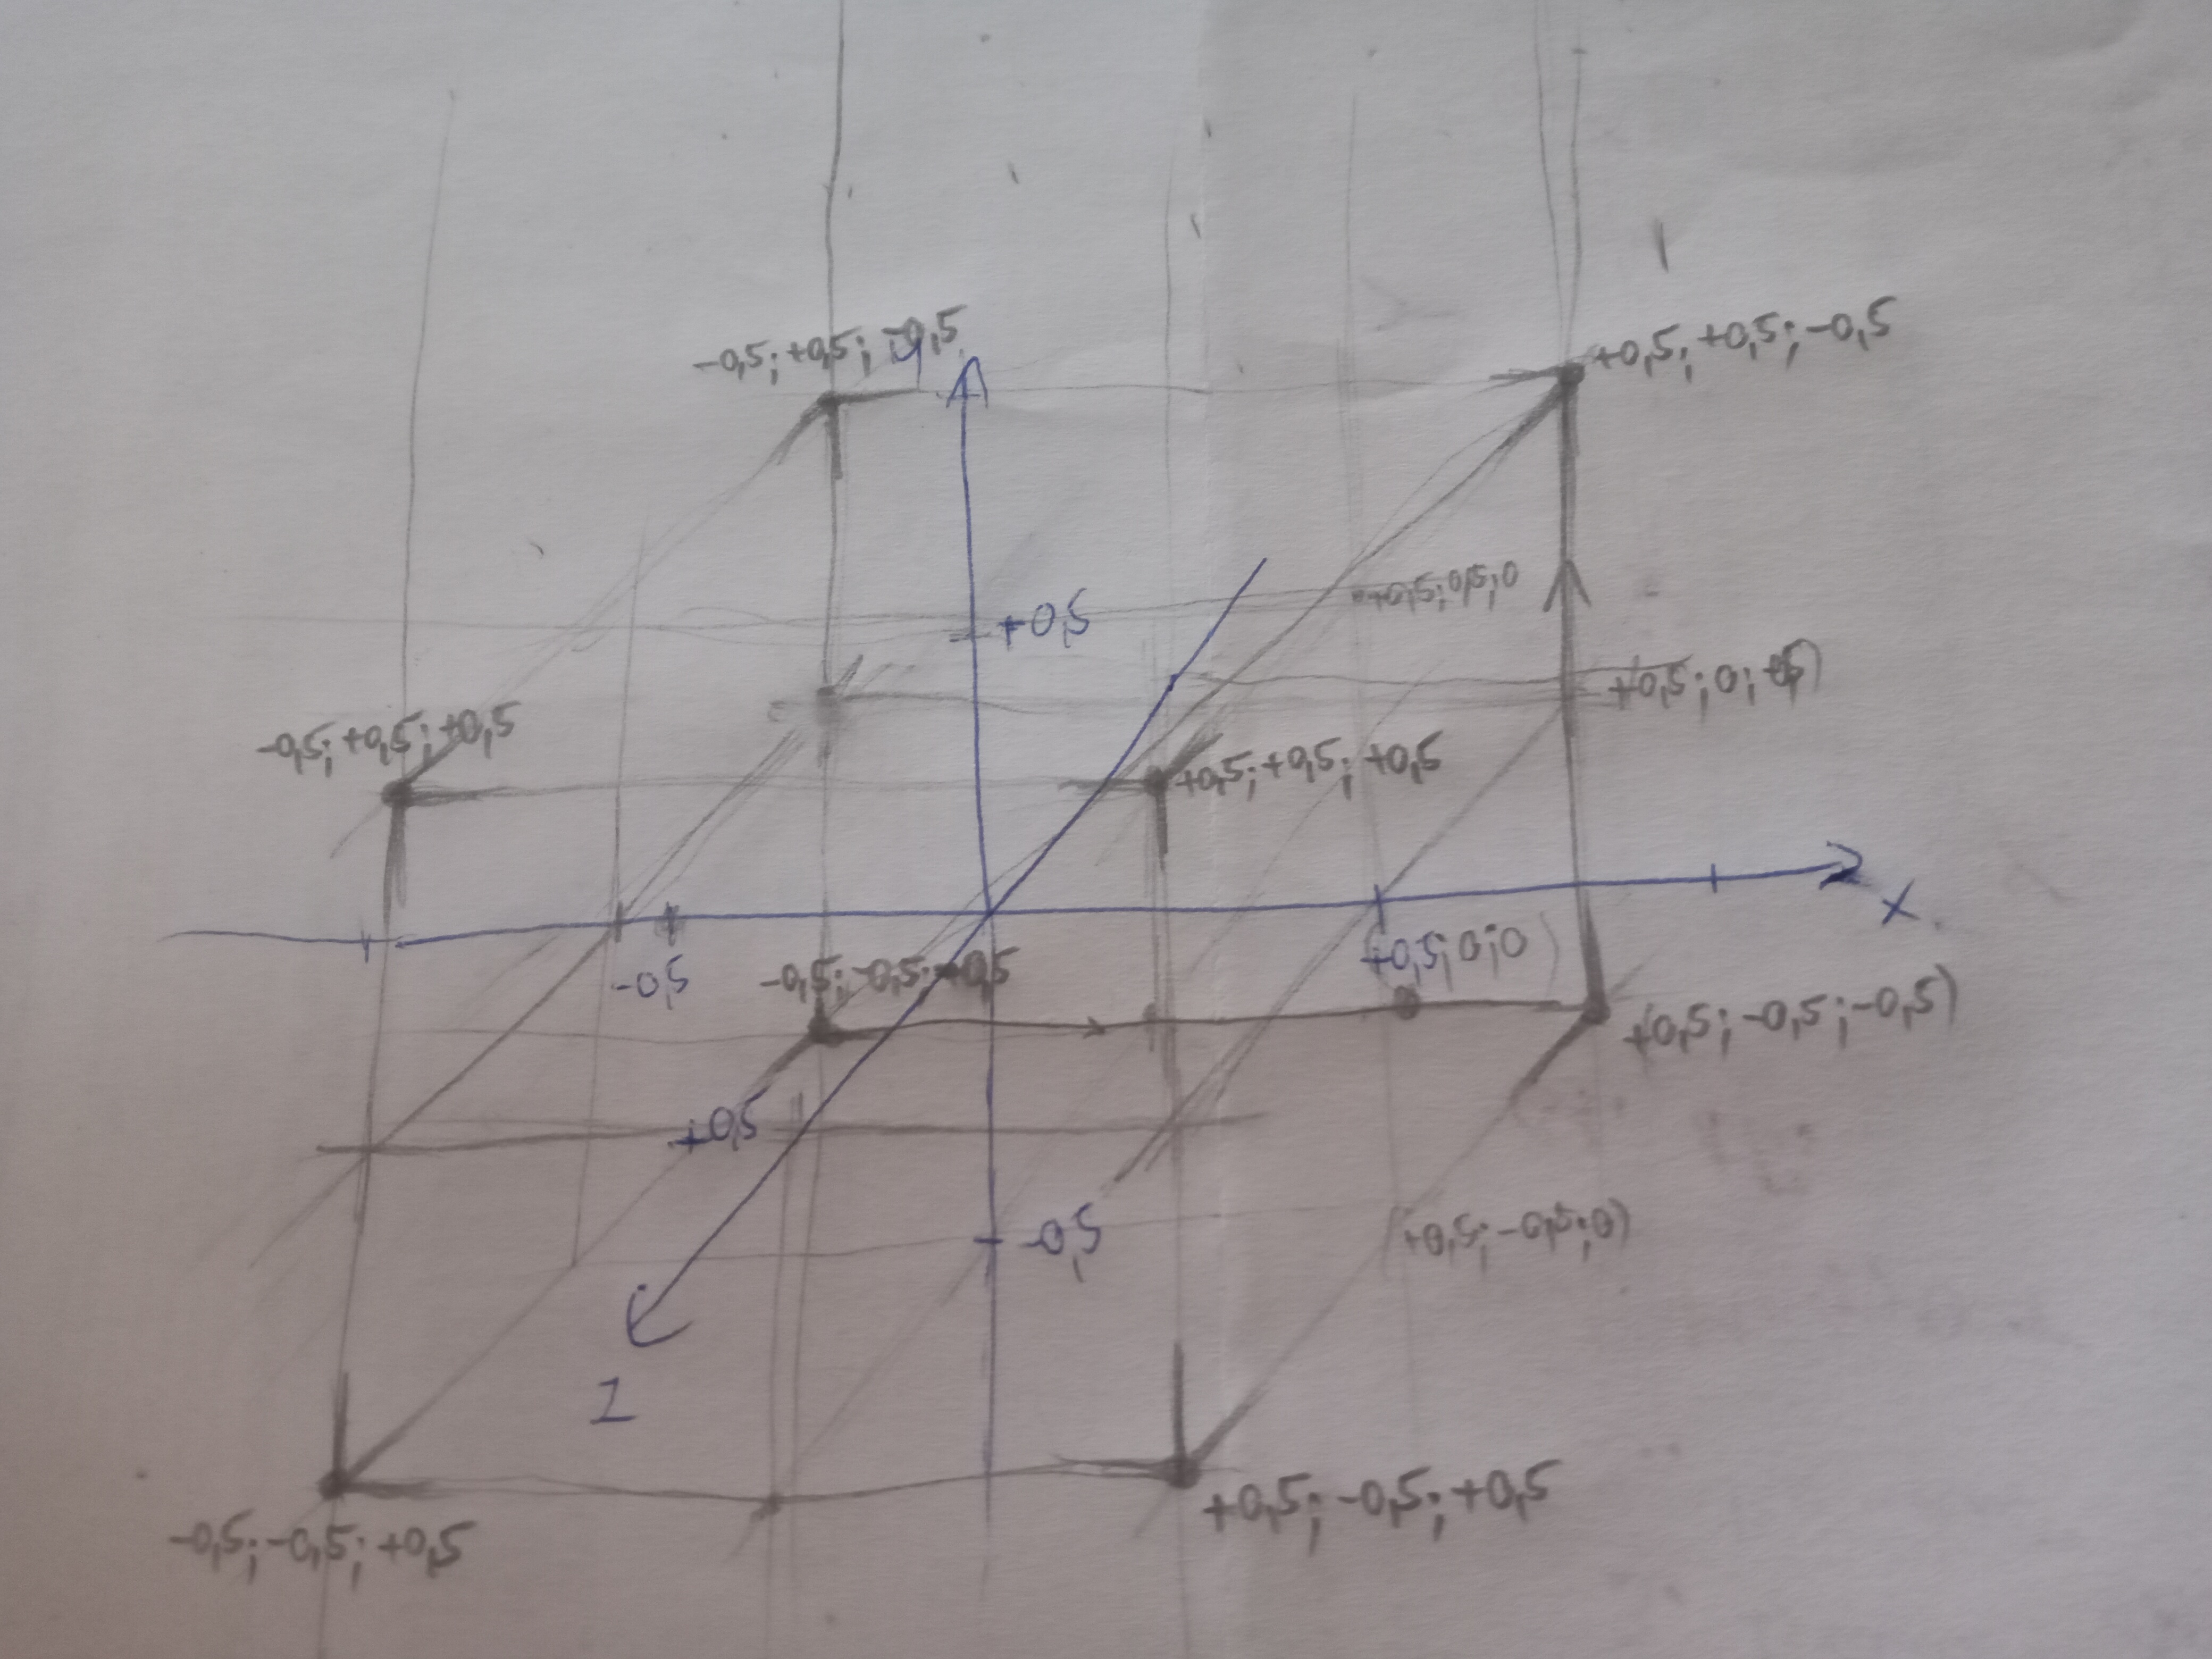 -0,5; +0,5; -0,5
+0,5; +0,5; -0,5
+0,5; 0,5; 0
+0,5
-0,5; +0,5; +0,5
+0,5; +0,5; +0,5
x
-0,5
+0,5; 0; 0)
-0,5; -0,5; -0,5
+(0,5; -0,5; -0,5)
+0,5
-0,5
(+0,5; -0,5; 0)
Z
+0,5; -0,5; +0,5
-0,5; -0,5; +0,5